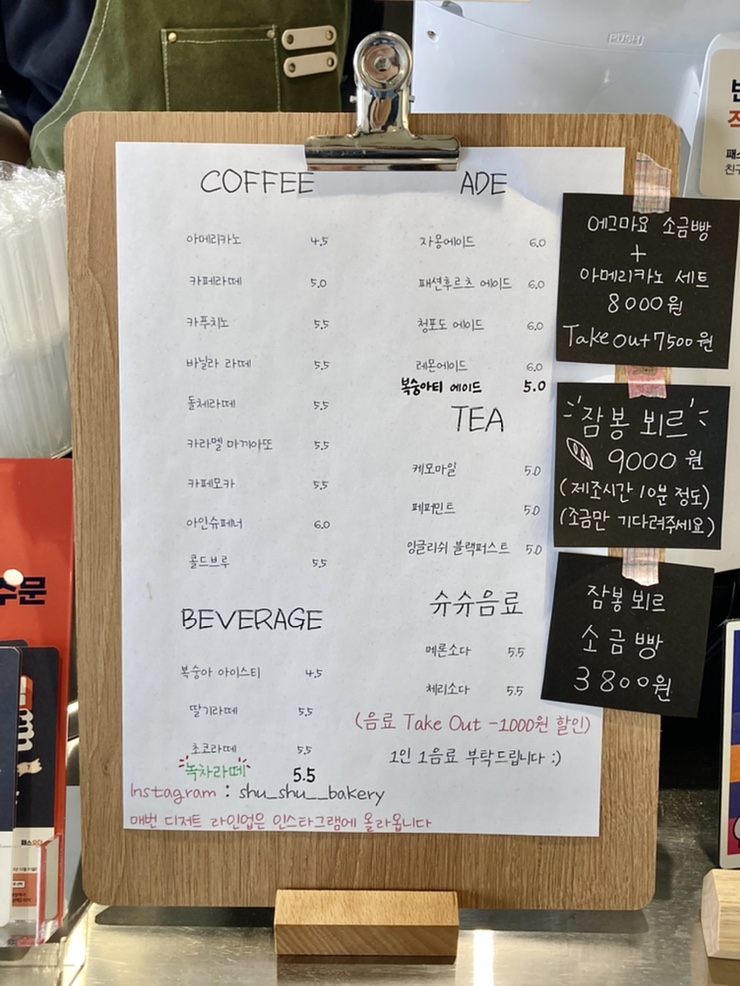 PUSH
COFFEE
아메리카노 4.5
카페라떼 5.0
카푸치노 5.5
바닐라 라떼 5.5
돌체라떼 5.5
카라멜 마끼아또 5.5
카페모카 5.5
아인슈페너 6.0
콜드브루 5.5
BEVERAGE
복숭아 아이스티 4.5
딸기라떼 5.5
초코라떼 5.5
녹차라떼 5.5
Instagram : shu_shu__bakery
매번 디저트 라인업은 인스타그램에 올라옵니다
ADE
자몽에이드 6.0
패션후르츠 에이드 6.0
청포도 에이드 6.0
레몬에이드 6.0
복숭아티 에이드 5.0
TEA
케모마일 5.0
페퍼민트 5.0
잉글리쉬 블랙퍼스트 5.0
슈슈음료
메론소다 5.5
체리소다 5.5
(음료 Take Out -1000원 할인)
1인 1음료 부탁드립니다 :)
에그마요 소금빵
+
아메리카노 세트
8000원
Take out 7500원
잠봉 뵈르
9000원
(제조시간 10분 정도)
(조금만 기다려주세요)
잠봉 뵈르
소금빵
3800원
수문